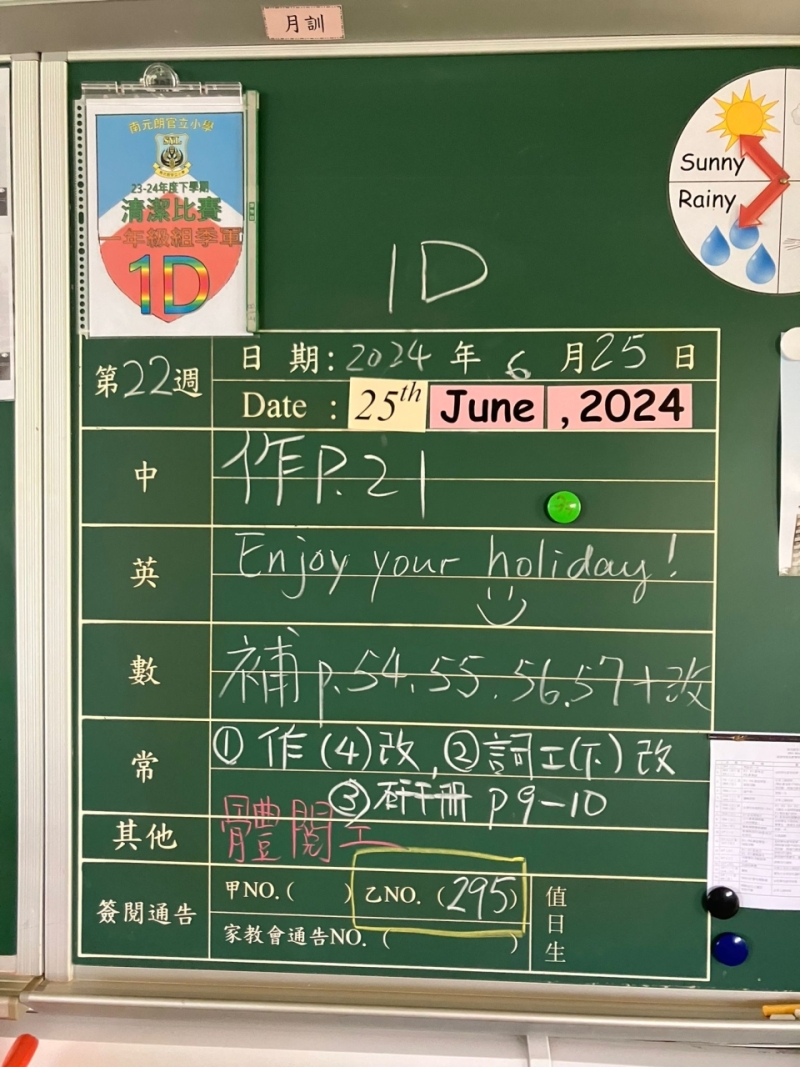 月訓
南元朗官立小學
23-24年度下學期
清潔比賽
一年級組季軍
1D
Sunny
Rainy
1D
第22週
日 期: 2024 年 6 月 25 日
Date : 25th June , 2024
中
作P.21
英
Enjoy your holiday!
數
補 p.54, 55, 56, 57+改
常
① 作(4)改, ② 詞工(下)改
③ 研冊 p9-10
其他
體閱工
簽閱通告
甲NO.( )
乙NO. (295)
家教會通告NO. ( )
值日生